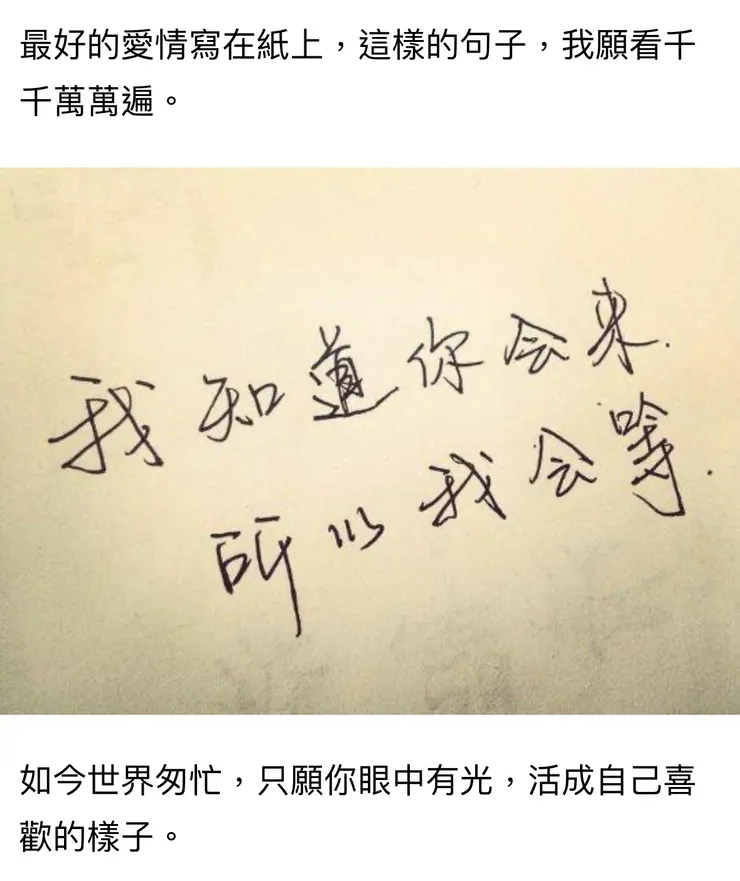 最好的愛情寫在紙上，這樣的句子，我願看千
千萬萬遍。
我知道你会来.
所以我会等.
如今世界匆忙，只願你眼中有光，活成自己喜
歡的樣子。